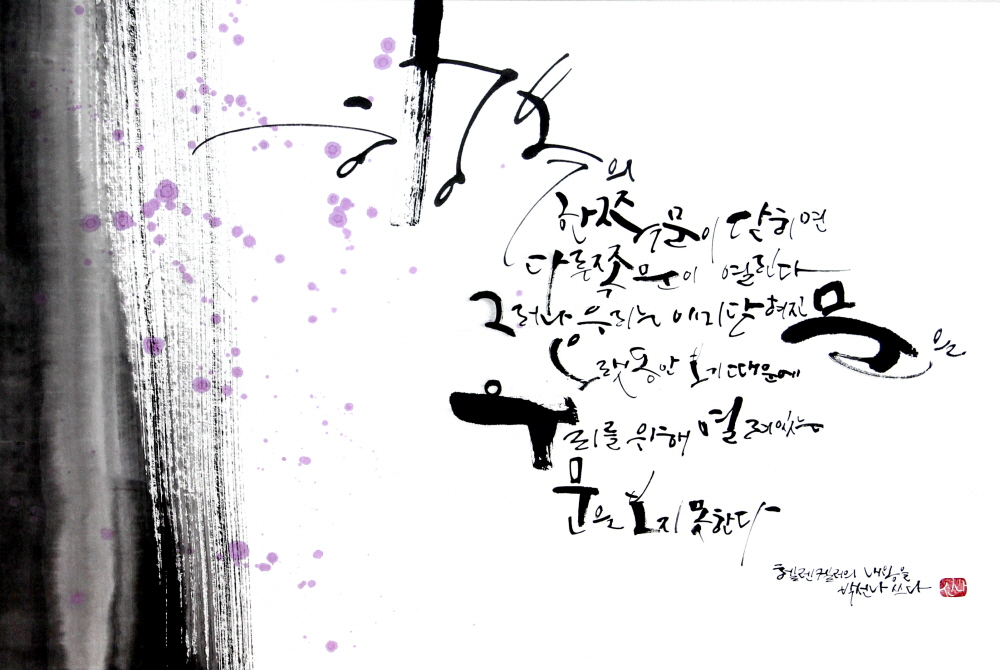 의
한쪽 문이 닫히면
다른쪽 문이 열린다
그러나 우리는 이미 닫혀진 문을
오랫동안 보기 때문에
우리를 위해 열려있는
문을 보지 못한다
헬렌켈러의 내용을
박선나 쓰다